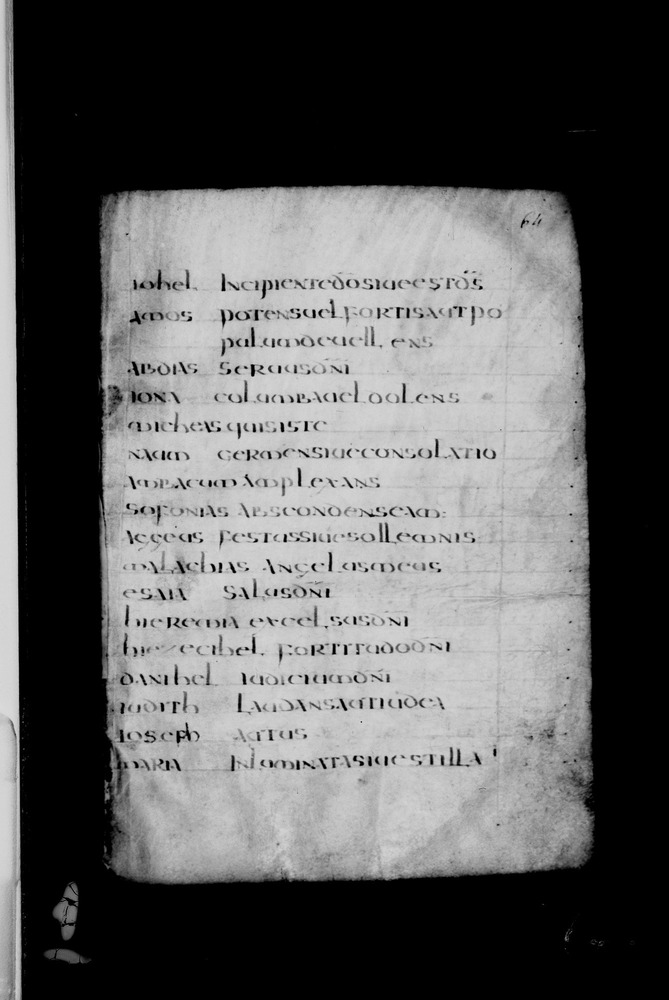 64
iohel Incipiente d̄o siue est d̄s
amos potens uel fortis aut po
pulum deuellens
abdias seruus dn̄i
iona columba uel dolens
micheas quis iste
naum germen siue consolatio
ambacum amplexans
sofonias abscondens eam:
aggeus festus siue sollemnis
malachias angelus meus
esaia salus dn̄i
hieremia excelsus dn̄i
hiezecihel fortitudo dn̄i
danihel iudicium dn̄i
iudith laudans aut iudea
ioseph auctus
maria inluminata siue stilla